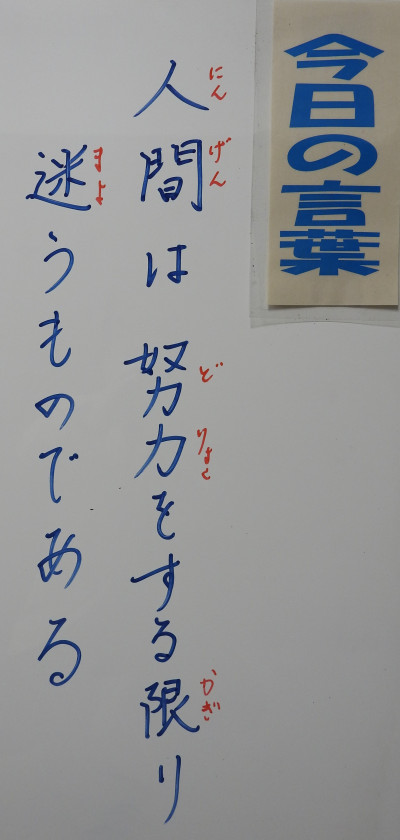 今日の言葉
人間は努力をする限り
にんげん どりょく かぎ
迷うものである
まよ